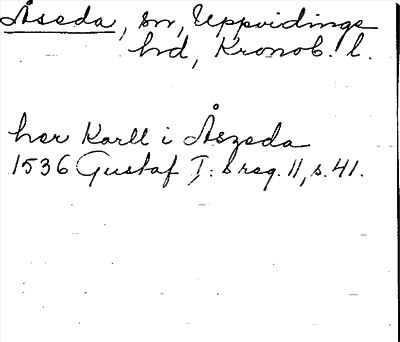 Åseda, sn, Uppvidinge
hd, Kronob. l.
her Karll i Åszeda
1536 Gustaf I:s reg. 11, s. 41.